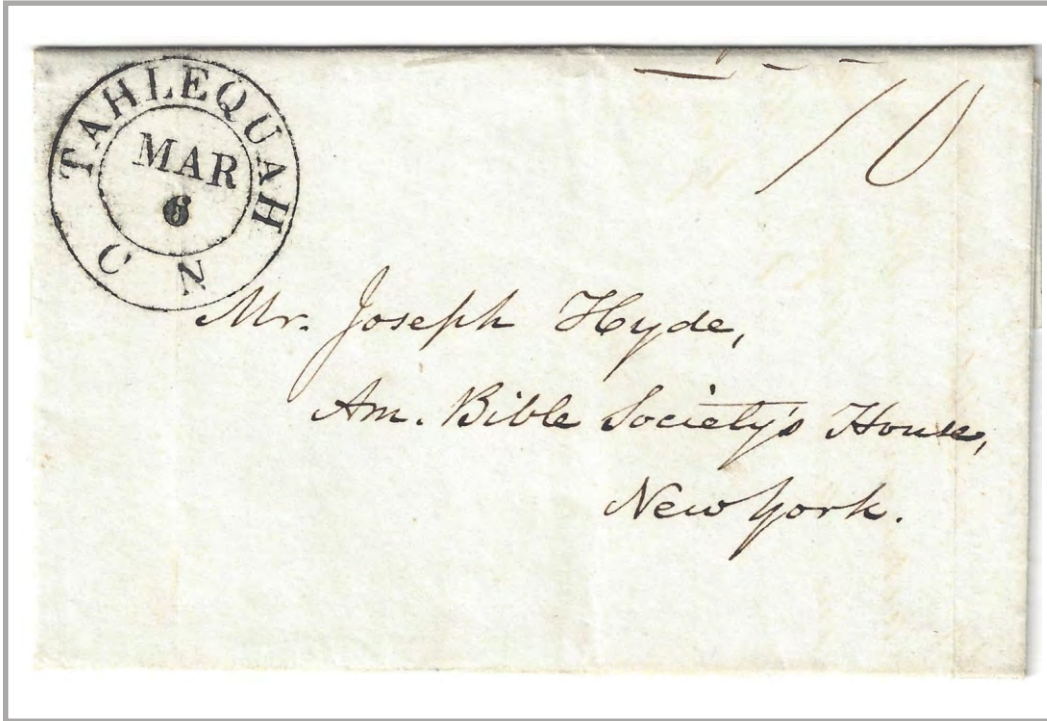 TAHLEQUAH
MAR
6
C N
10
Mr. Joseph Hyde,
Am. Bible Society's House,
New York.